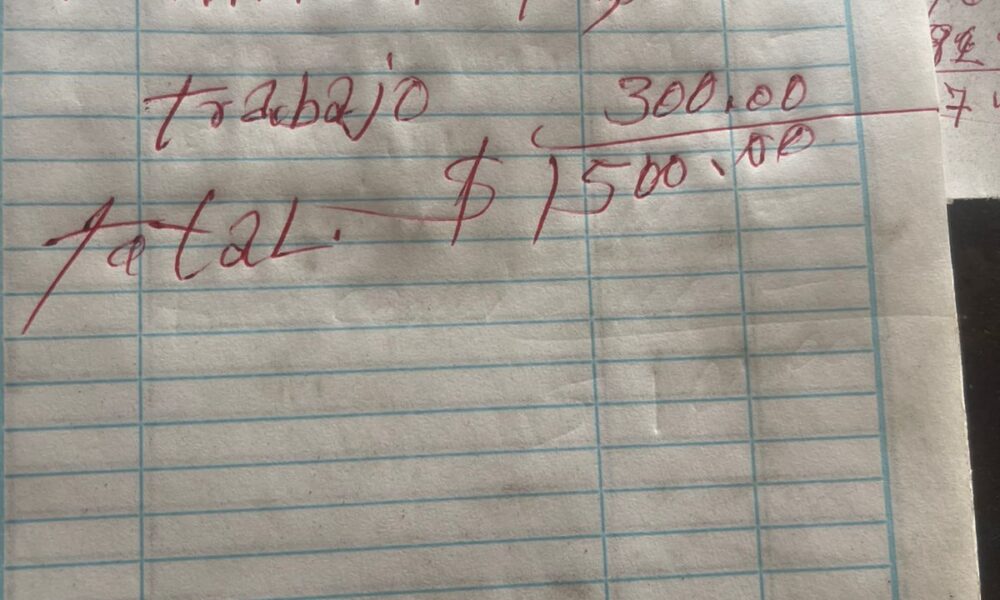 trabajo 300.00
total. $ 1500.00
82
7